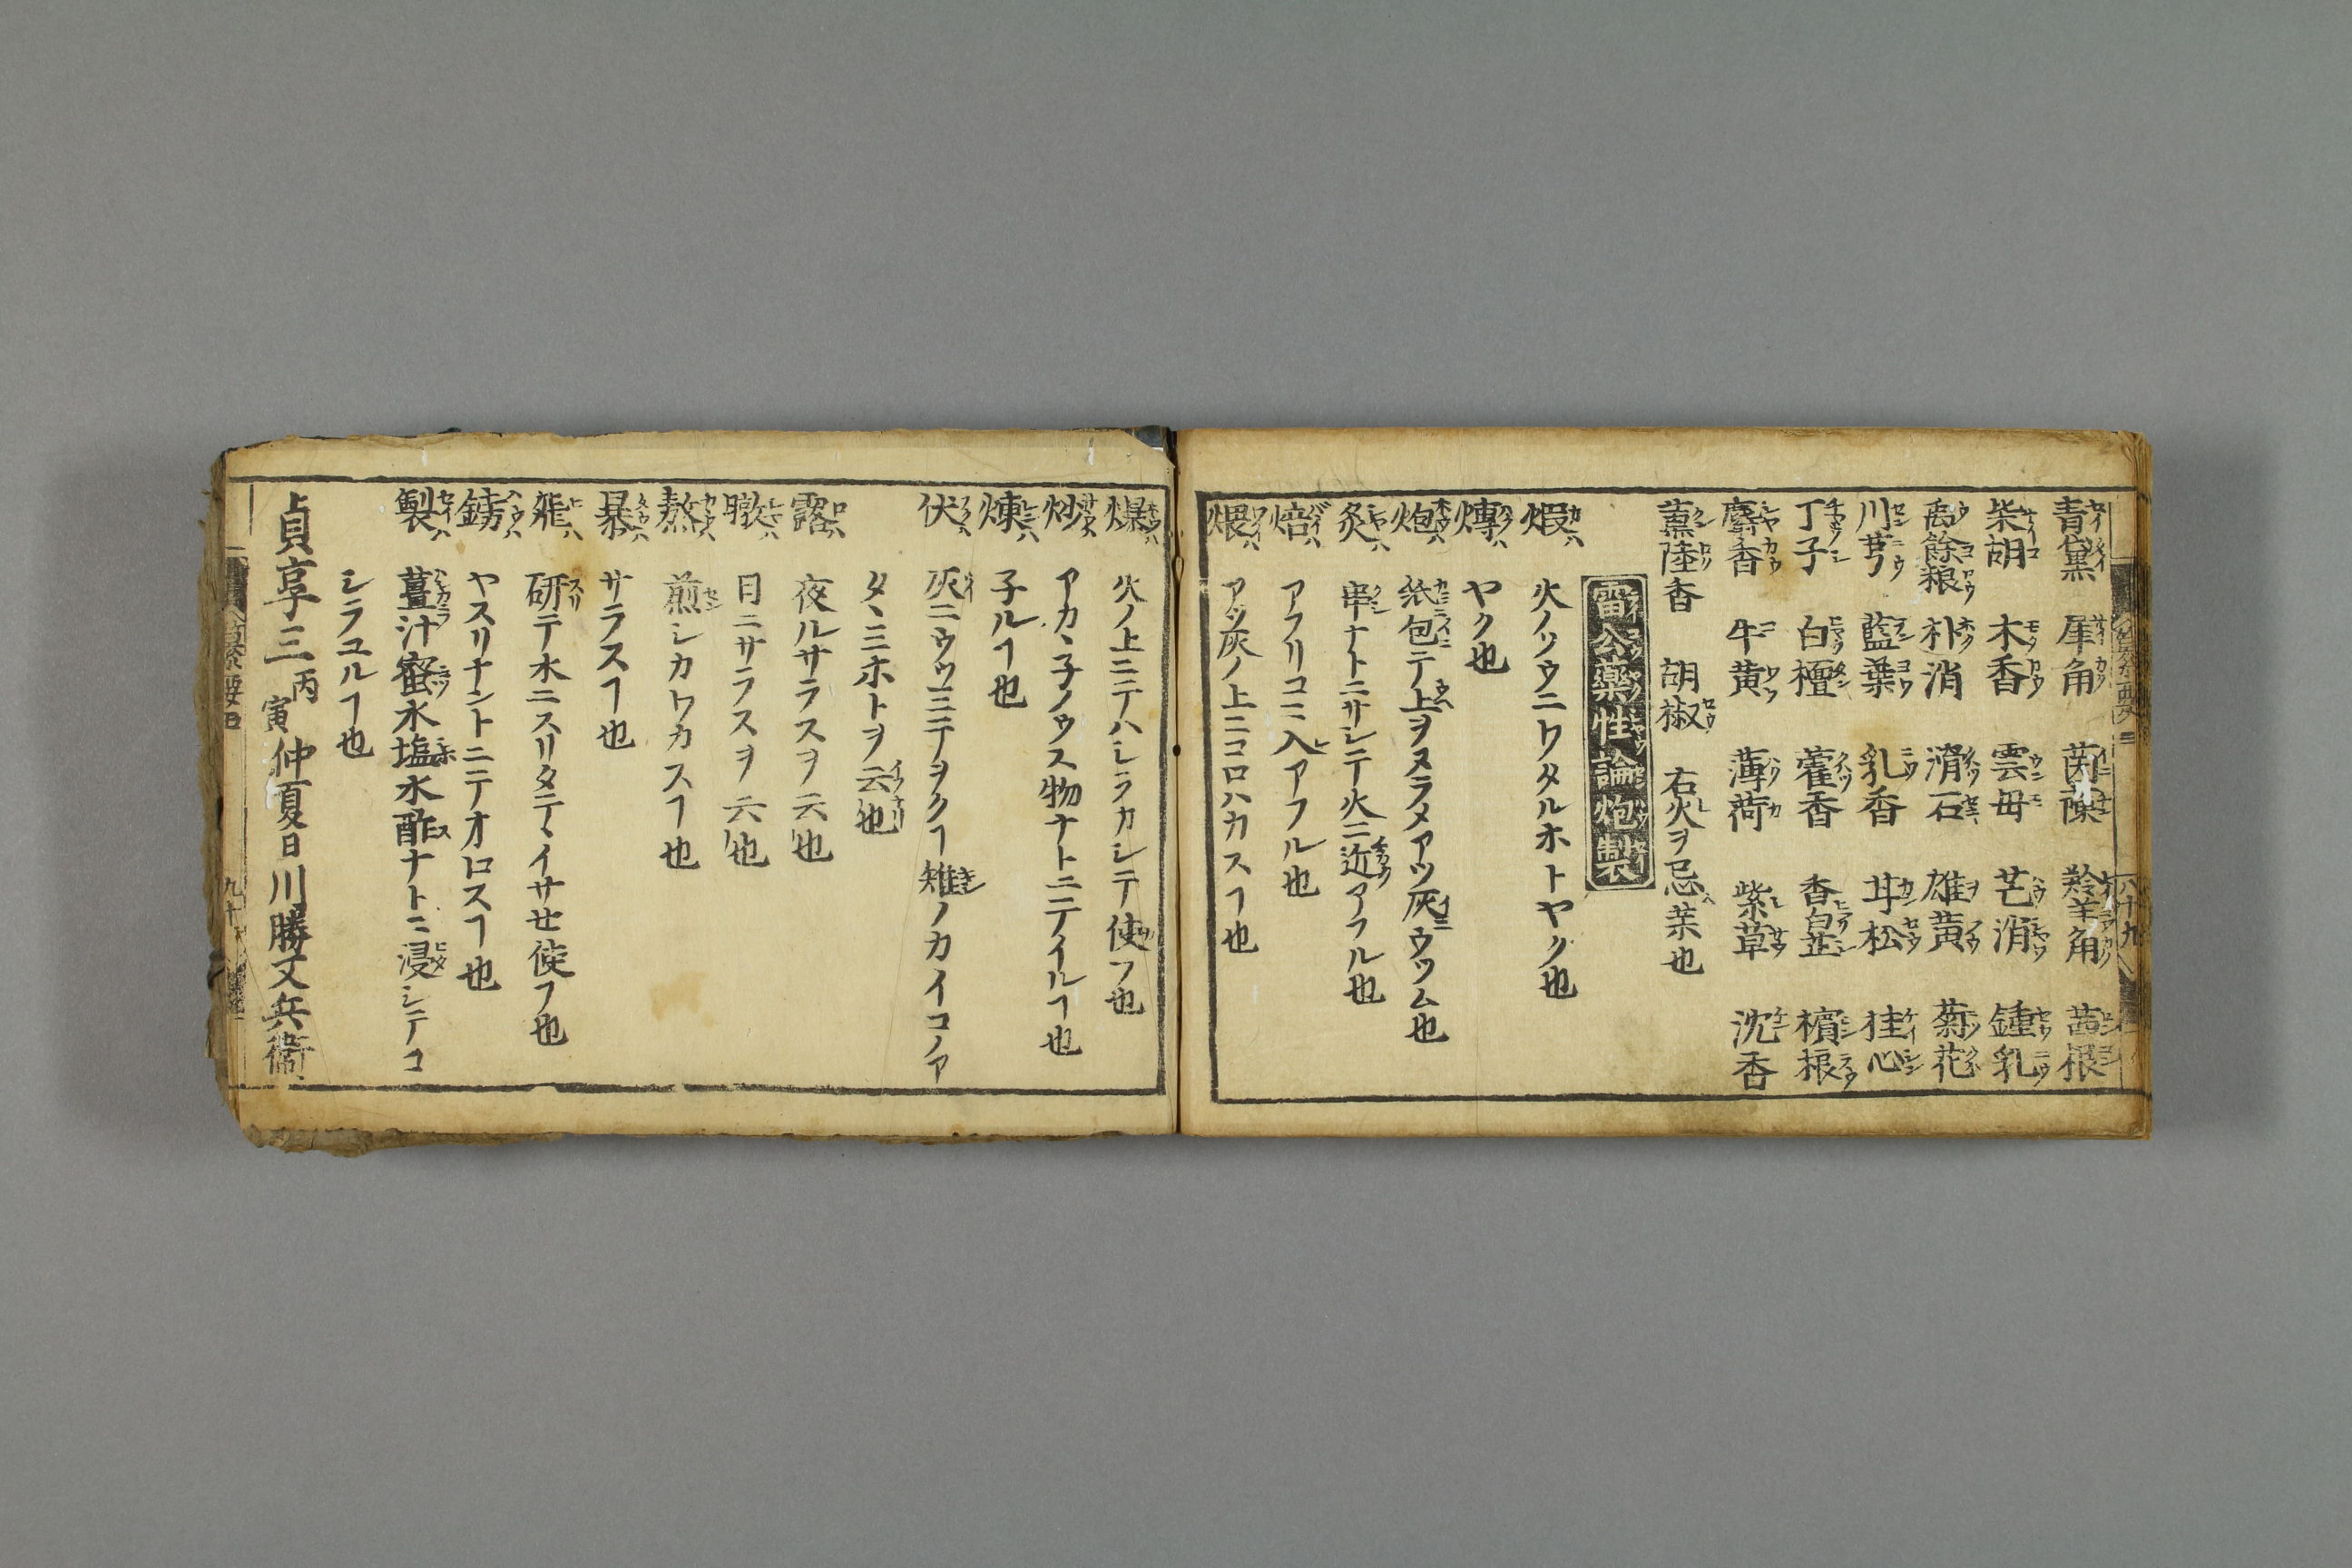 青黛 犀角 茵蔯 羚羊角 茜根
柴胡 木香 雲母 芒消 鍾乳
禹餘粮 朴消 滑石 雄黄 菊花
川芎 藍葉 乳香 耳松 桂心
丁子 白檀 藿香 香白芷 檳榔
麝香 牛黄 薄荷 紫草 沈香
薫陸香 胡椒 右火ヲ忌薬也
雷公藥性論炮製
煆ハ 火ノソウニワタルホトヤク也
煿ハ ヤク也
炮ハ 紙包テ上ヲヌラメアツ灰ウツム也
炙ハ 串ナトニサシテ火ニ近アフル也
焙ハ アフリコニ入アフル也
煨ハ アツ灰ノ上ニコロハカスヿ也
爆ハ 火ノ上ニテハシラカシテ使フ也
炒ハ アカヽ子ノウス物ナトニテイルヿ也
煉ハ 子ルヿ也
伏ハ 灰ニウツミテヲクヿ雉ノカイコノア
タヽミホトヲ云也
露ハ 夜ルサラスヲ云也
暾ハ 日ニサラスヲ云也
熬ハ 煎シカワカスヿ也
暴ハ サラスヿ也
飛ハ 研テ水ニスリタテヽイサセ使フ也
鎊ハ ヤスリナントニテオロスヿ也
製ハ 薑汁蜜水塩水酢ナトニ浸シテコ
シラユルヿ也
貞享三丙寅仲夏日川勝又兵衛